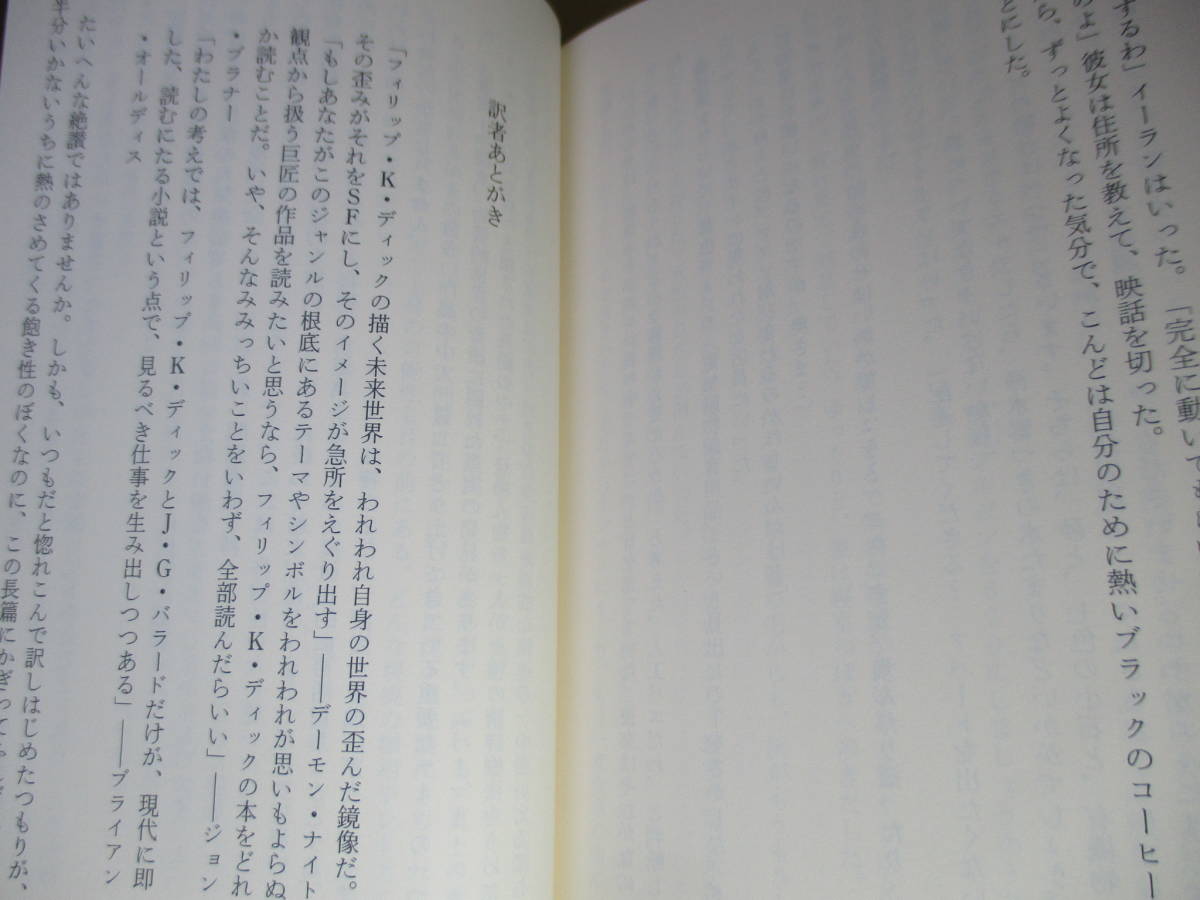 するわ」イーランはいった。「完全に動いても
のよ」彼女は住所を教えて、映話を切った。
ら、ずっとよくなった気分で、こんどは自分のために熱いブラックのコーヒー
とにした。
訳者あとがき
「フィリップ・K・ディックの描く未来世界は、われわれ自身の世界の歪んだ鏡像だ。
その歪みがそれをSFにし、そのイメージが急所をえぐり出す」――デーモン・ナイト
「もしあなたがこのジャンルの根底にあるテーマやシンボルをわれわれが思いもよらぬ
観点から扱う巨匠の作品を読みたいと思うなら、フィリップ・K・ディックの本をどれ
か読むことだ。いや、そんなみみっちいことをいわず、全部読んだらいい」――ジョン
・ブラナー
「わたしの考えでは、フィリップ・K・ディックとJ・G・バラードだけが、現代に即
した、読むにたる小説という点で、見るべき仕事を生み出しつつある」――ブライアン
・オールディス
たいへんな絶讃ではありませんか。しかも、いつもだと惚れこんで訳しはじめたつもりが、
半分いかないうちに熱のさめてくる飽き性のぼくなのに、この長篇にかぎって